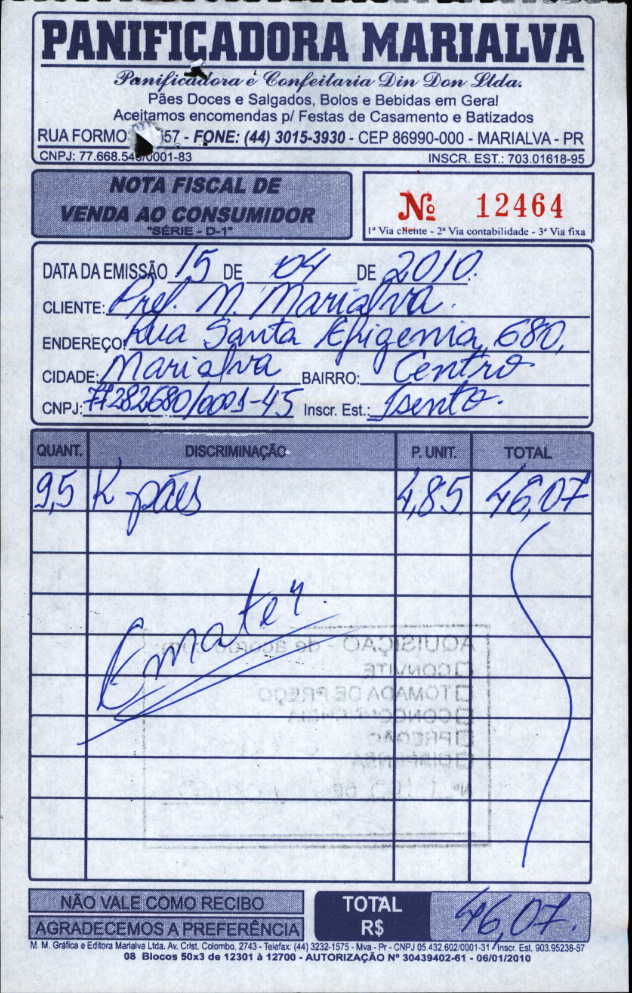 PANIFICADORA MARIALVA
Panificadora e Confeitaria Din Don Ltda.
Pães Doces e Salgados, Bolos e Bebidas em Geral
Aceitamos encomendas p/ Festas de Casamento e Batizados
RUA FORMO 57 - FONE: (44) 3015-3930 - CEP 86990-000 - MARIALVA - PR
CNPJ: 77.668.54 /0001-83 INSCR. EST.: 703.01618-95
NOTA FISCAL DE
VENDA AO CONSUMIDOR
"SÉRIE - D-1"
Nº 12464
1ª Via cliente - 2ª Via contabilidade - 3ª Via fixa
DATA DA EMISSÃO 15 DE 04 DE 2010.
CLIENTE: Pref. M. Marialva.
ENDEREÇO: Rua Santa Efigenia, 680,
CIDADE: Marialva BAIRRO: Centro
CNPJ: 77282680/0001-45 Inscr. Est.: Isento.
QUANT. DISCRIMINAÇÃO P. UNIT. TOTAL
9,5 K pães 4,85 46,07
Emater.
AQUISIÇÃO - de acordo
CONVITE
TOMADA DE PREÇO
CONCORRÊNCIA
PREGÃO
DISPENSA
Nº DE
NÃO VALE COMO RECIBO
AGRADECEMOS A PREFERÊNCIA
TOTAL
R$ 46,07.
M. M. Gráfica e Editora Marialva Ltda. Av. Crist. Colombo, 2743 - Telefax: (44) 3232-1575 - Mva - Pr - CNPJ 05.432.602/0001-31 Inscr. Est. 903.95238-57
08 Blocos 50x3 de 12301 à 12700 - AUTORIZAÇÃO Nº 30439402-61 - 06/01/2010